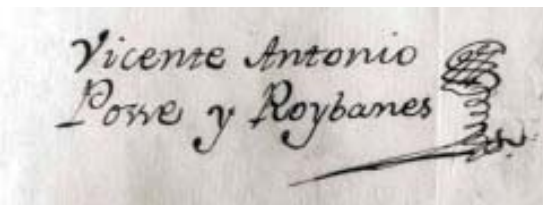 Vicente Antonio
Powe y Roybanes